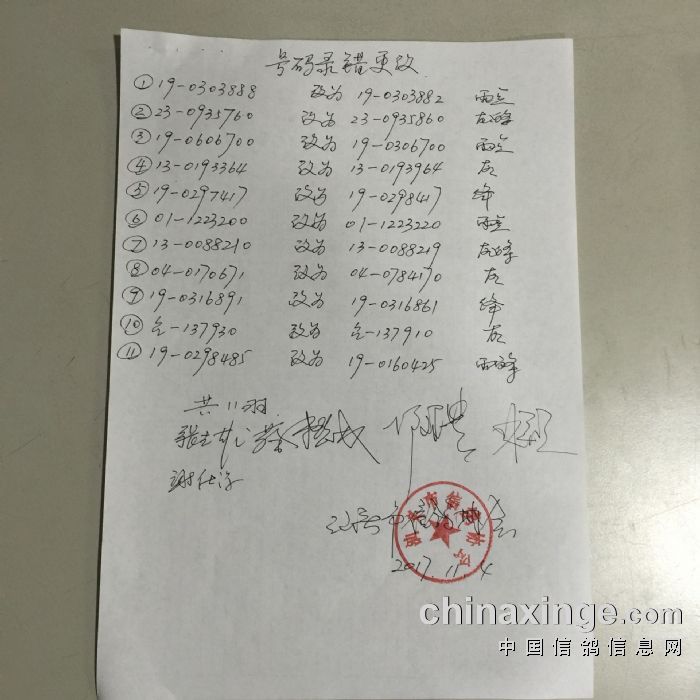 号码录错更改
① 19-0303888 改为 19-0303882 雨点
② 23-0935760 改为 23-0935860 灰峰
③ 19-0606700 改为 19-0306700 雨点
④ 13-0193364 改为 13-0193964 灰
⑤ 19-0297417 改为 19-0298417 绛
⑥ 01-1223200 改为 01-1223220 雨点
⑦ 13-0088210 改为 13-0088219 灰峰
⑧ 04-0170671 改为 04-0784170 灰
⑨ 19-0316891 改为 19-0316861 绛
⑩ -137930 改为 -137910 灰
⑪ 19-0298485 改为 19-0160425 雨峰
共11羽
市信鸽协会
2017.11.4
chinaxinge.com
中国信鸽信息网